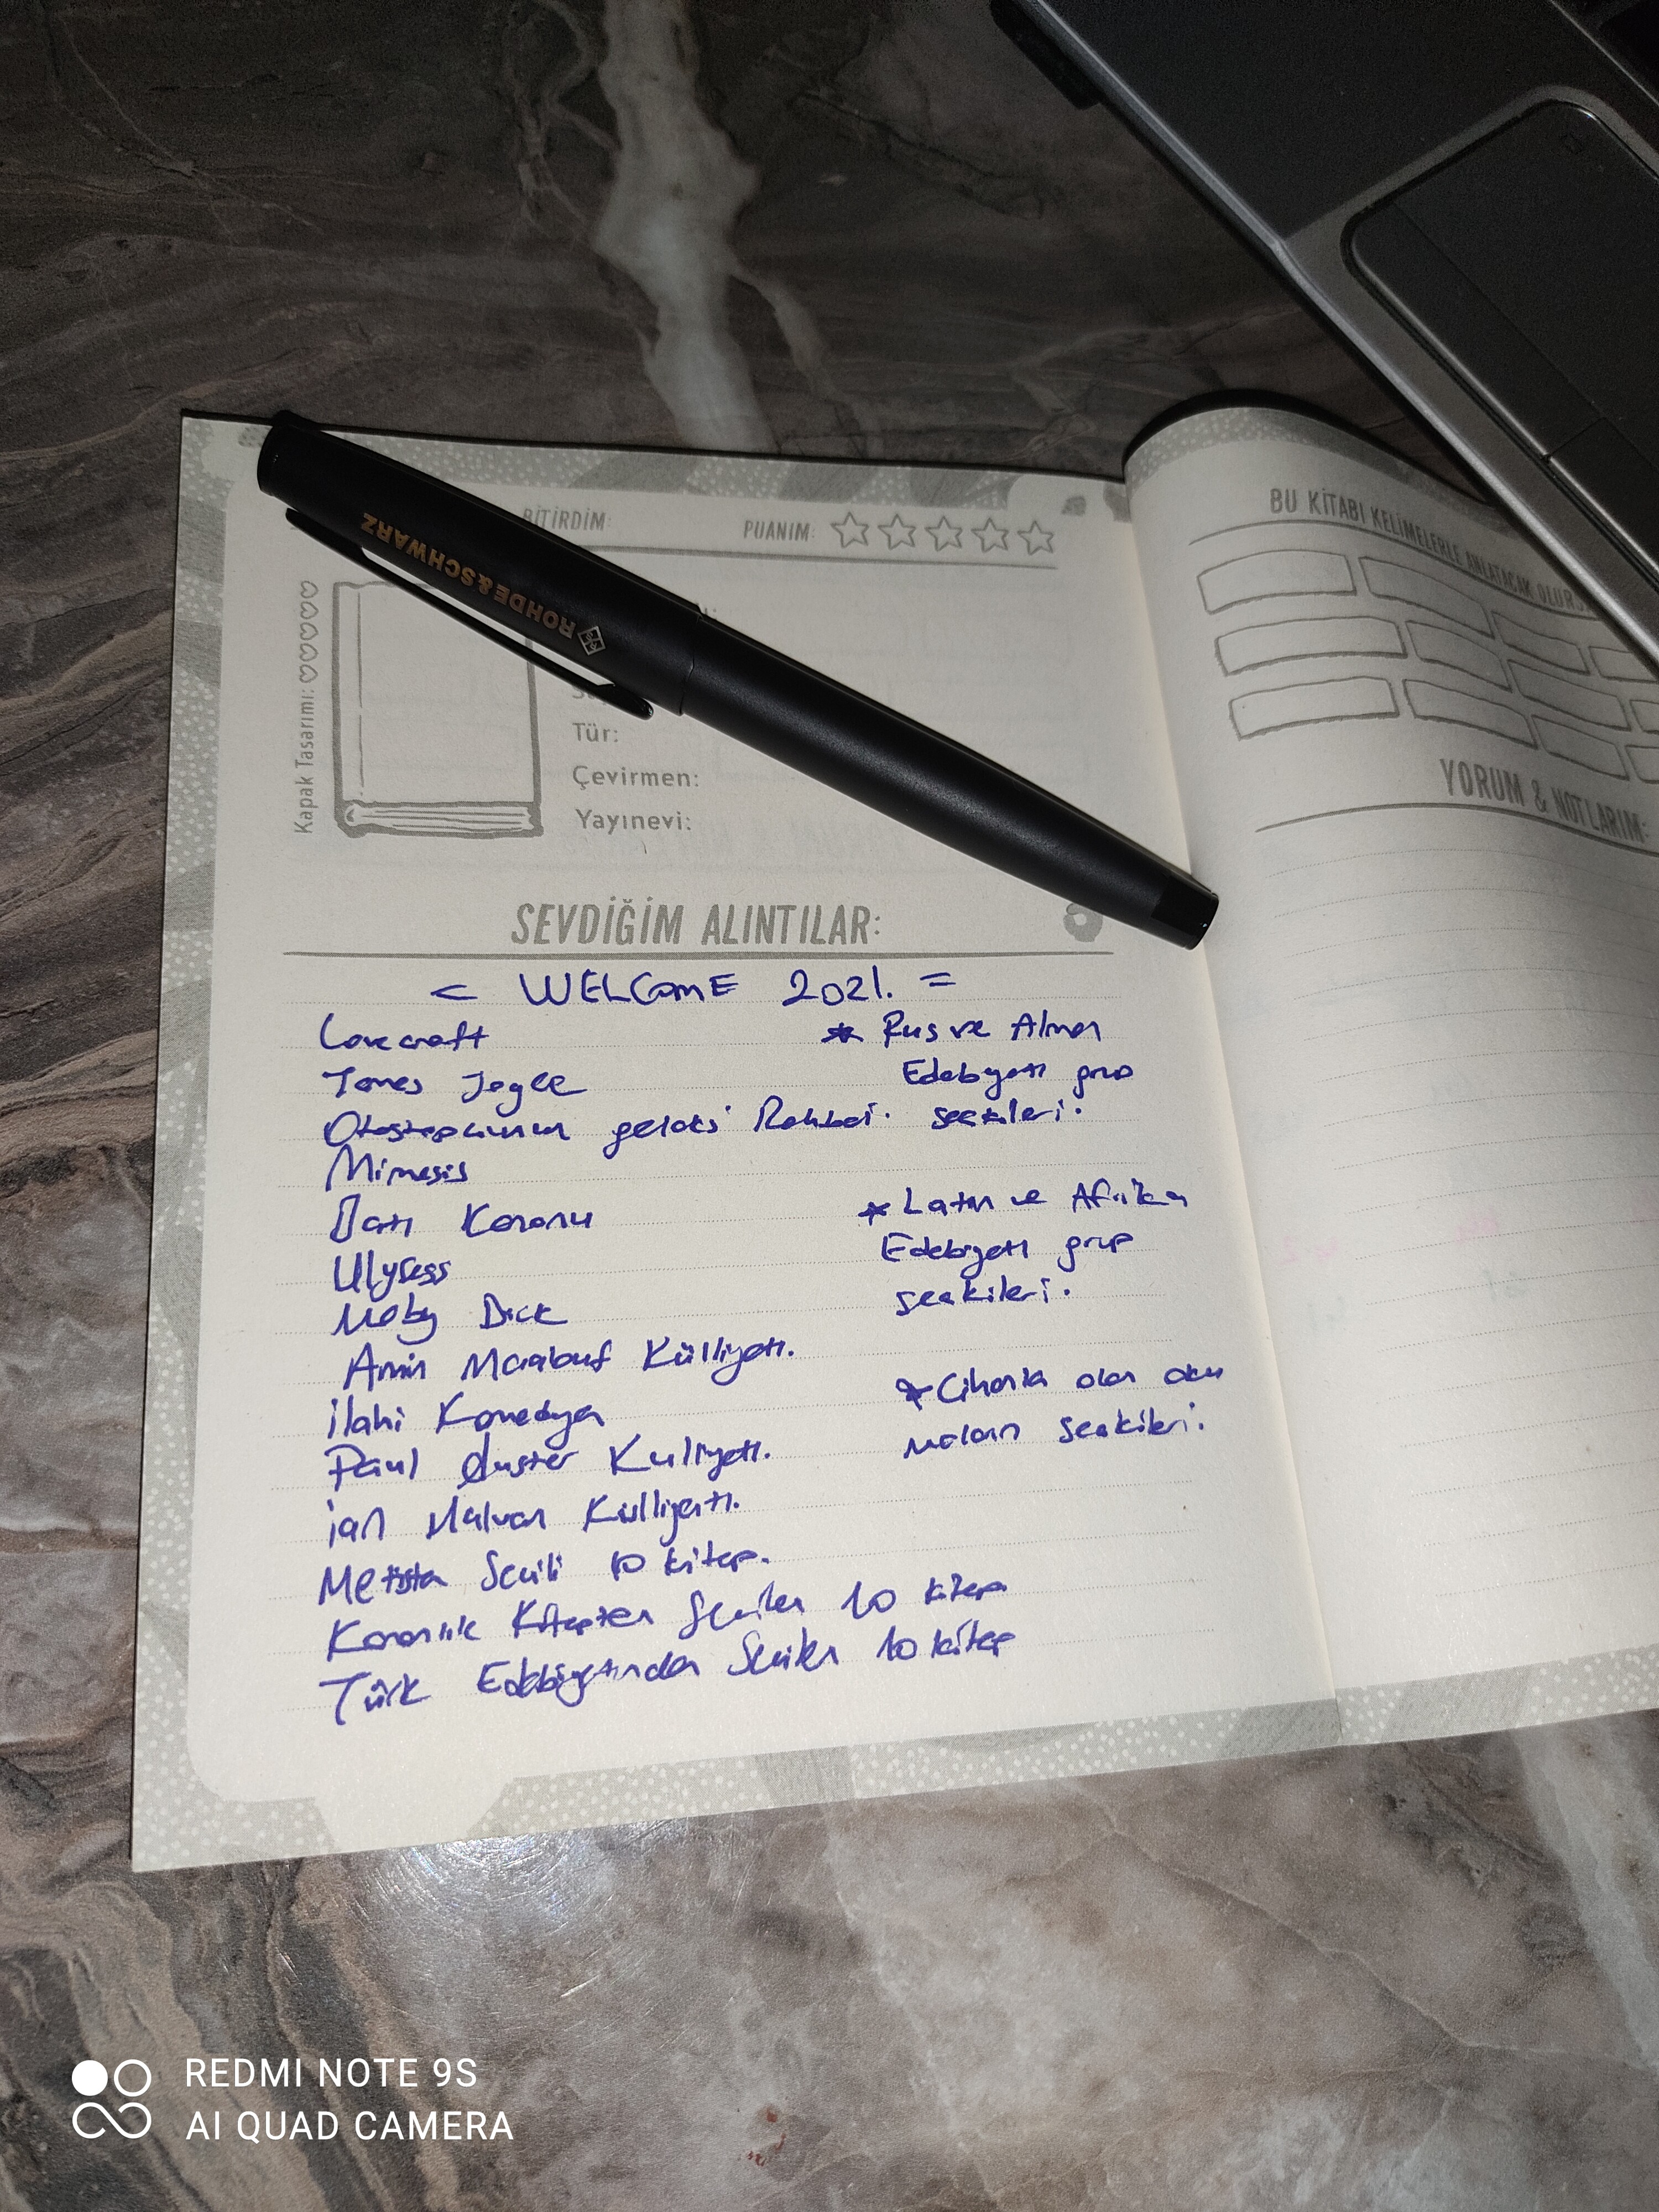 BİTİRDİM:
PUANIM:
ROHDE&SCHWARZ
Kapak Tasarımı:
Tür:
Çevirmen:
Yayınevi:
SEVDİĞİM ALINTILAR:
< WELCOME 2021. =
Lovecraft
James Joyce
Otostopçunun galaksi Rehberi.
Mimesis
Batı Kanonu
Ulysess
Moby Dick
Amin Maalouf Külliyatı.
ilahi Komedya
Paul Auster Kulliyatı.
ian Külliyatı.
Metisten Seçili 10 kitap.
Karanlık Kitaptan Seçilen 10 kitap
Türk Edebiyatından Seçilen 10 kitap
* Rus ve Alman
Edebiyatı grup
seçkileri.
* Latin ve Afrika
Edebiyatı grup
seçkileri.
* Cihanla olan oku
maların seçkileri.
BU KİTABI KELİMELERLE ANLATACAK
YORUM & NOTLARIM:
REDMI NOTE 9S
AI QUAD CAMERA